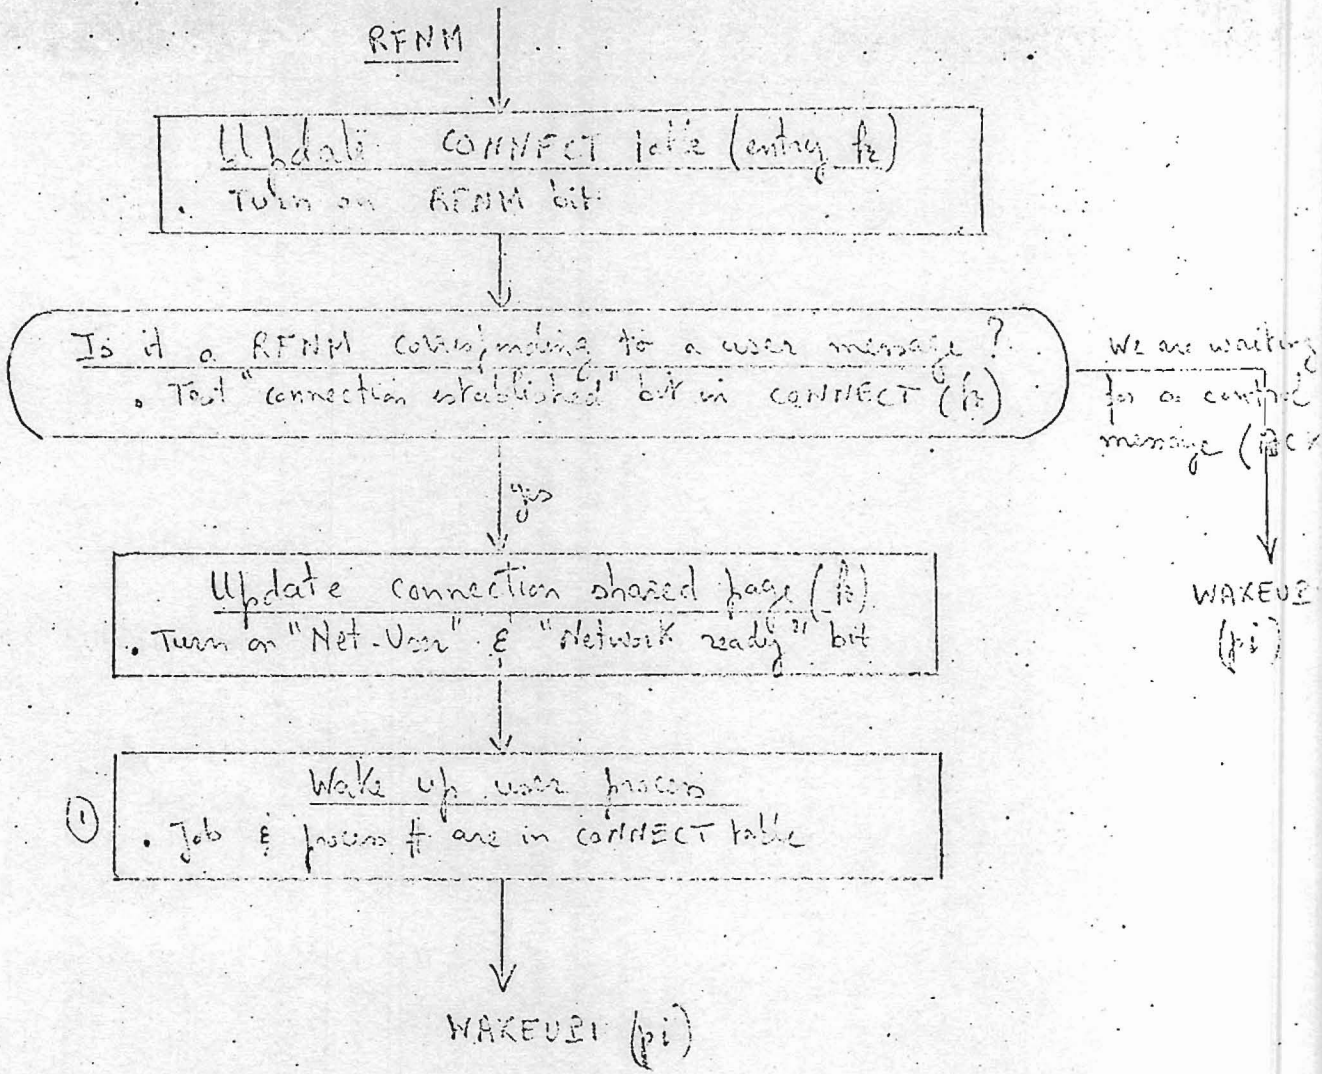 RFNM
Update CONNECT table (entry k)
. Turn on RFNM bit
Is it a RFNM corresponding to a user message ?
. Test "connection established" bit in CONNECT (k)
We are waiting
for a control
message (ACK
yes
Update connection shared page (k)
. Turn on "Net-User" & "Network ready" bit
WAKEUP
(pi)
Wake up user process
① . Job & process # are in CONNECT table
(pi)